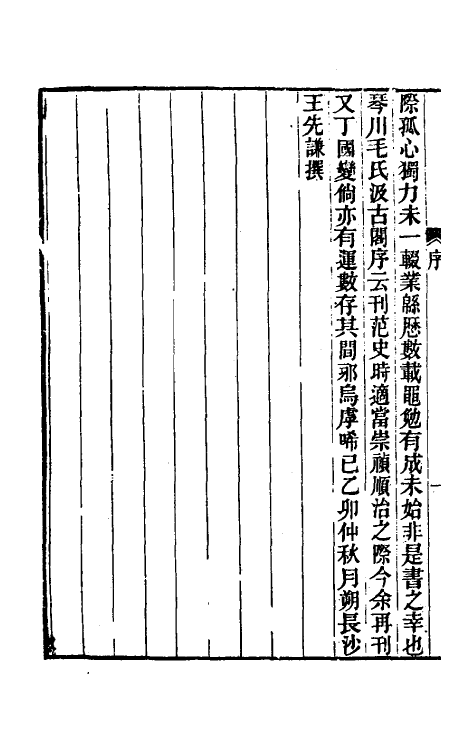 序
一
際孤心獨力未一輟業緜厯數載黽勉有成未始非是書之幸也
琴川毛氏汲古閣序云刊范史時適當崇禎順治之際今余再刊
又丁國變倘亦有運數存其間邪烏虖唏已乙卯仲秋月朔長沙
王先謙撰